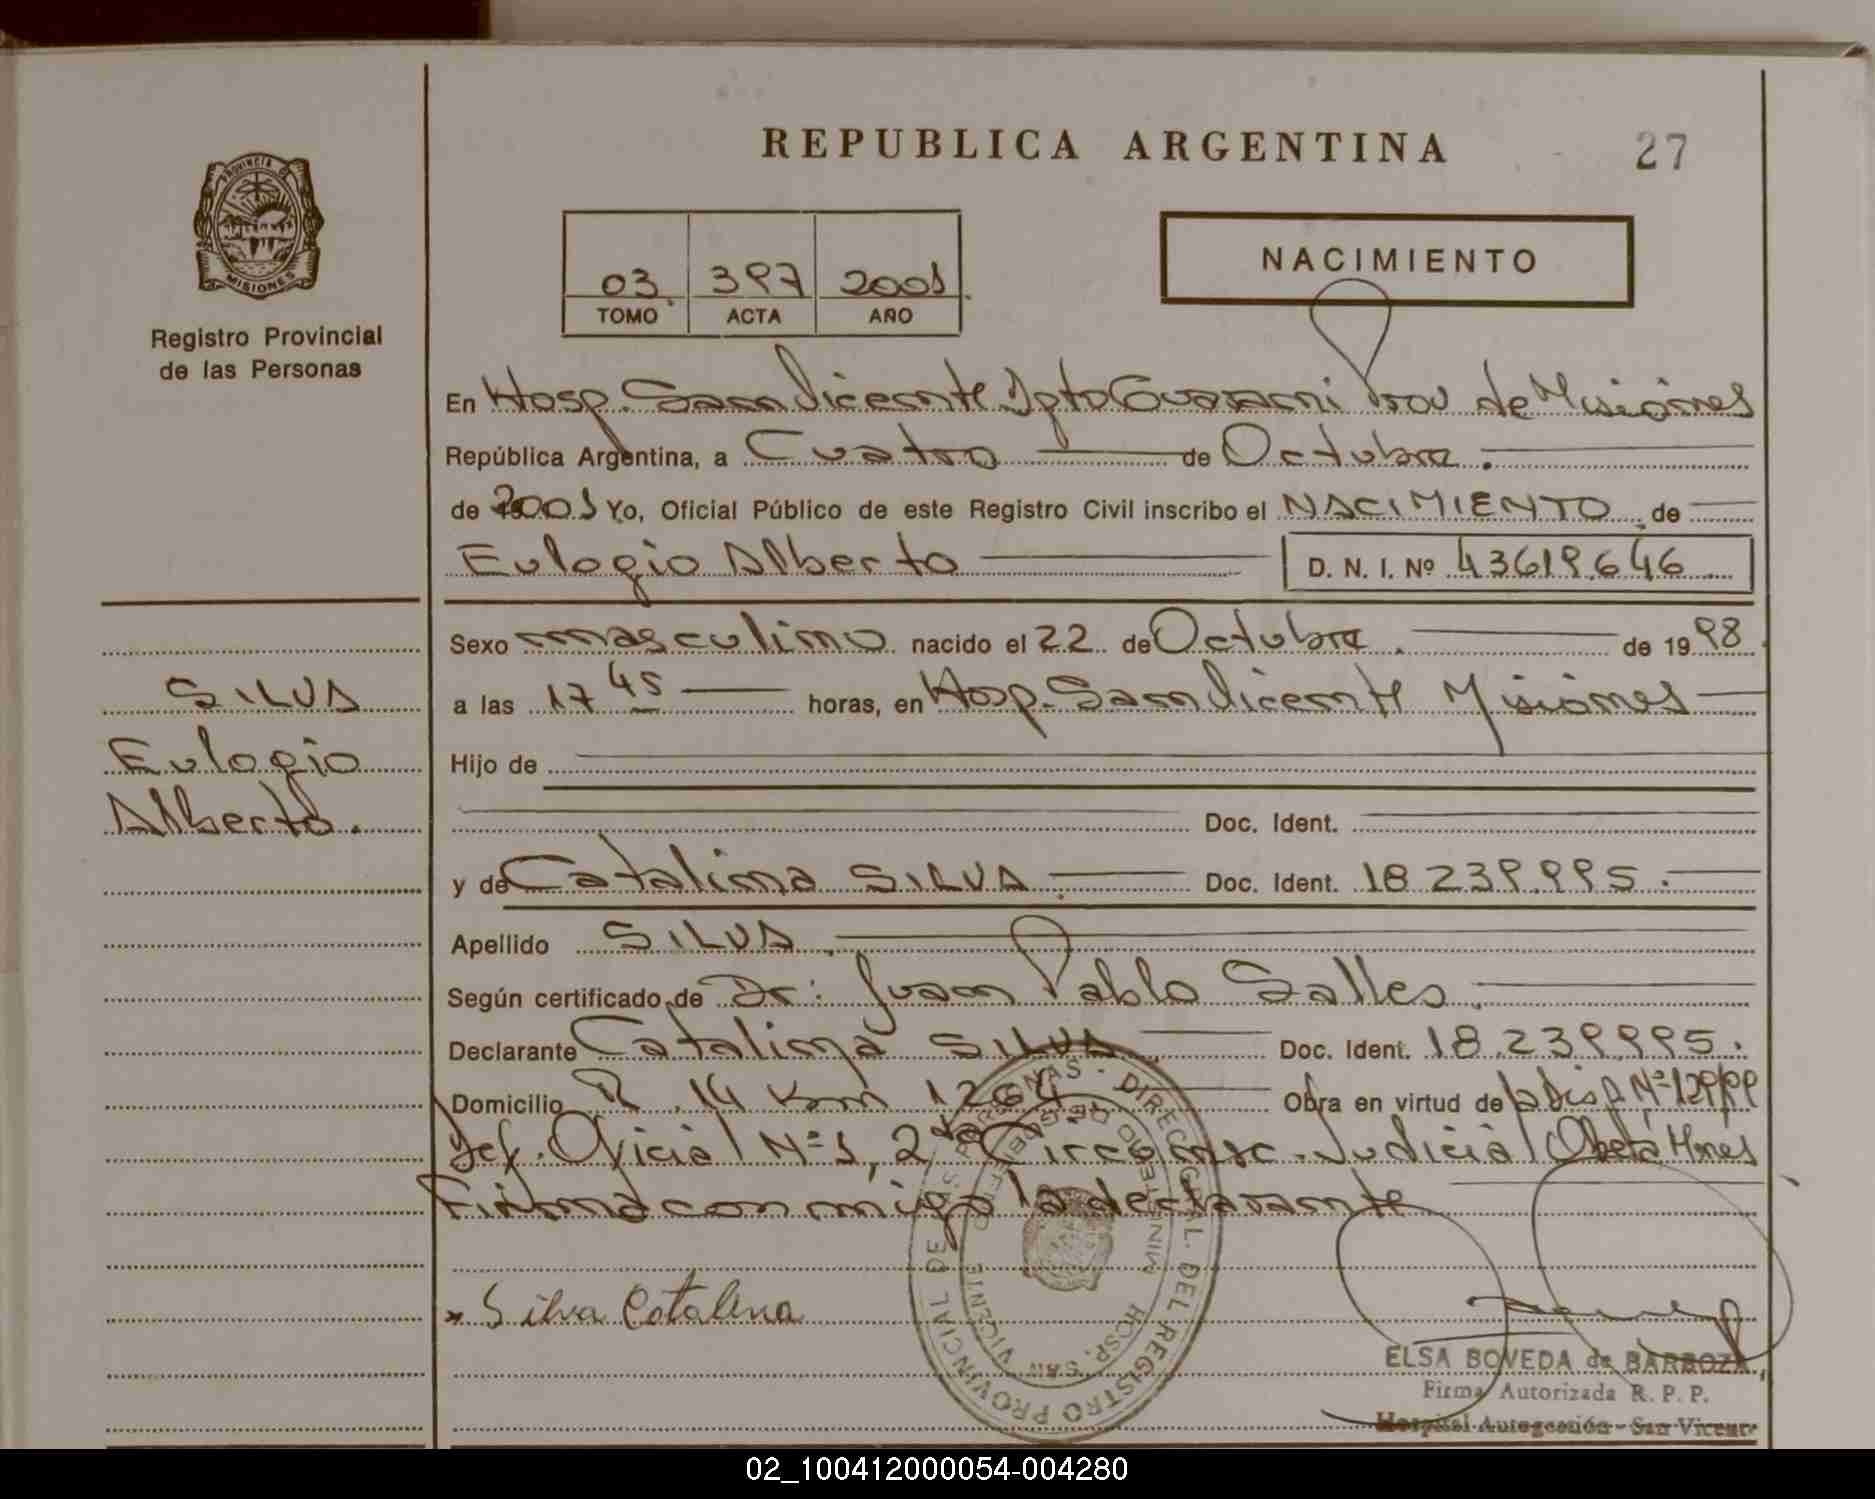 REPUBLICA ARGENTINA
27
PROVINCIA DE
MISIONES
Registro Provincial
de las Personas
03 397 2001
TOMO ACTA AÑO
NACIMIENTO
En Hosp. San Vicente Dpto Guarani Prov de Misiones
República Argentina, a Cuatro de Octubre.
de 2001 Yo, Oficial Público de este Registro Civil inscribo el NACIMIENTO de
Eulogio Alberto D. N. I. Nº 43619646
Sexo masculino nacido el 22 de Octubre. de 1998
a las 17 45 horas, en Hosp. San Vicente Misiones
Hijo de
Doc. Ident.
y de Catalina SILVA. Doc. Ident. 18 239.995.
Apellido SILVA.
Según certificado de Dr: Juan Pablo Salles.
Declarante Catalina SILVA. Doc. Ident. 18.239995.
Domicilio R. 14 Km 1264 Obra en virtud de la Disp. Nº 129/99
Def. Oficial Nº 1, 2da Circunsc. Judicial Oberá Mnes
Firma conmigo la declarante
SILVA
Eulogio
Alberto.
Silva Catalina
DIREC. GRAL. DEL REGISTRO PROVINCIAL DE LAS PERSONAS
HOSP. SAN VICENTE
ELSA BOVEDA de BARBOZA
Firma Autorizada R. P. P.
Hospital Autogestión - San Vicente
02_100412000054-004280